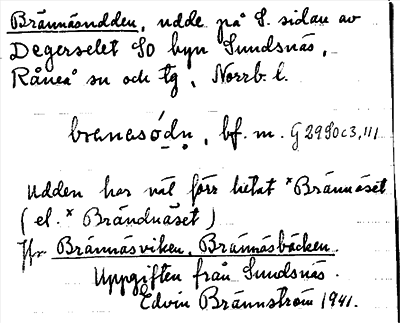 Brännäsudden, udde på S. sidan av
Degerselet SO byn Sundsnäs,
Råneå sn och tg, Norrb. l.
brenesọ́dṇ, bf. m. G2990c3,111
Udden har väl förr hetat *Brännäset
(el. *Brändnäset)
Jfr Brännäsviken, Brännäsbäcken.
Uppgiften från Sundsnäs.
Edvin Brännström 1941.